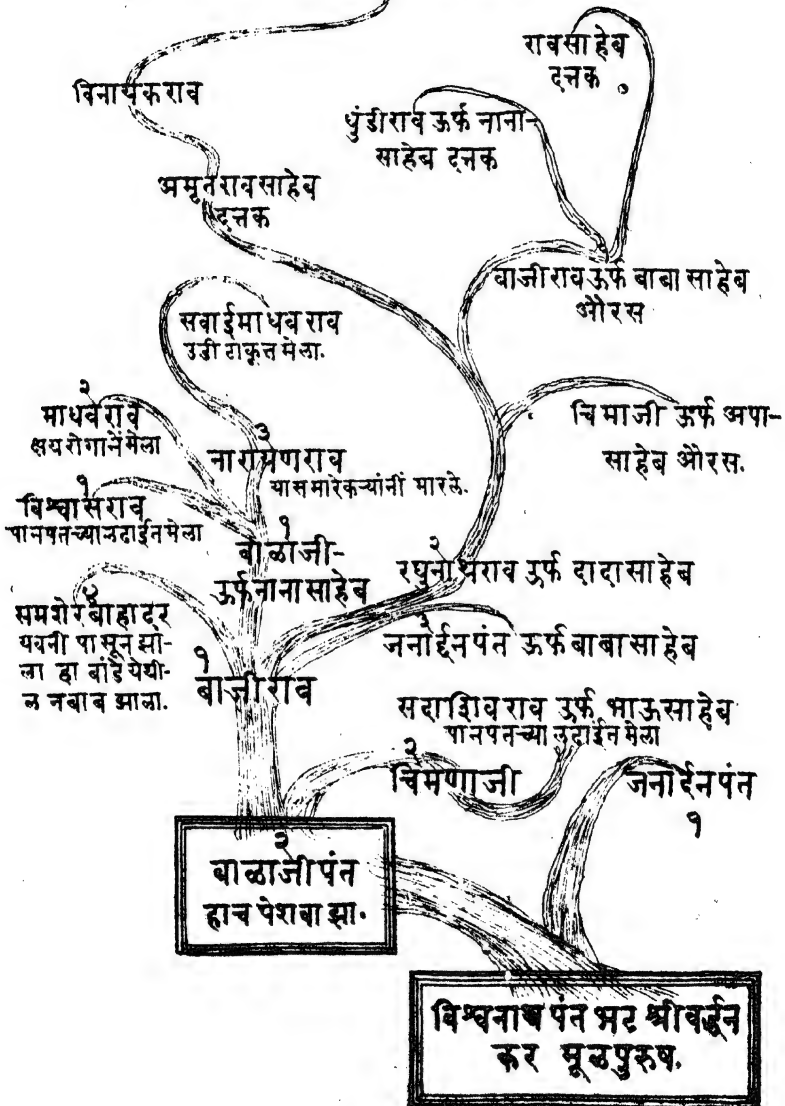 रावसाहेब
दत्तक
विनायकराव
धुंडीराव ऊर्फ नाना-
साहेब दत्तक
अमृतरावसाहेब
दत्तक
बाजीराव ऊर्फ बाबासाहेब
औरस
सवाईमाधवराव
उडी टाकून मेला.
२
माधवराव
क्षयरोगानें मेला
चिमाजी ऊर्फ अपा-
साहेब औरस.
३
नारायणराव
यास मारेकऱ्यांनीं मारले.
१
विश्वासराव
पानपतच्या लढाईत मेला
१
बाळाजी-
ऊर्फ नानासाहेब
२
रघुनाथराव ऊर्फ दादासाहेब
४
समशेरबाहादर
यवनी पासून झा-
ला हा बांडे येथी-
ल नबाब झाला.
३
जनार्दनपंत ऊर्फ बाबासाहेब
१
बाजीराव
सदाशिवराव उर्फ भाऊसाहेब
पानपतच्या लढाईत मेला
२
चिमणाजी
जनार्दनपंत
१
२
बाळाजीपंत
हाच पेशवा झा.
विश्वनाथपंत भट श्रीवर्द्धन
कर मूळपुरुष.